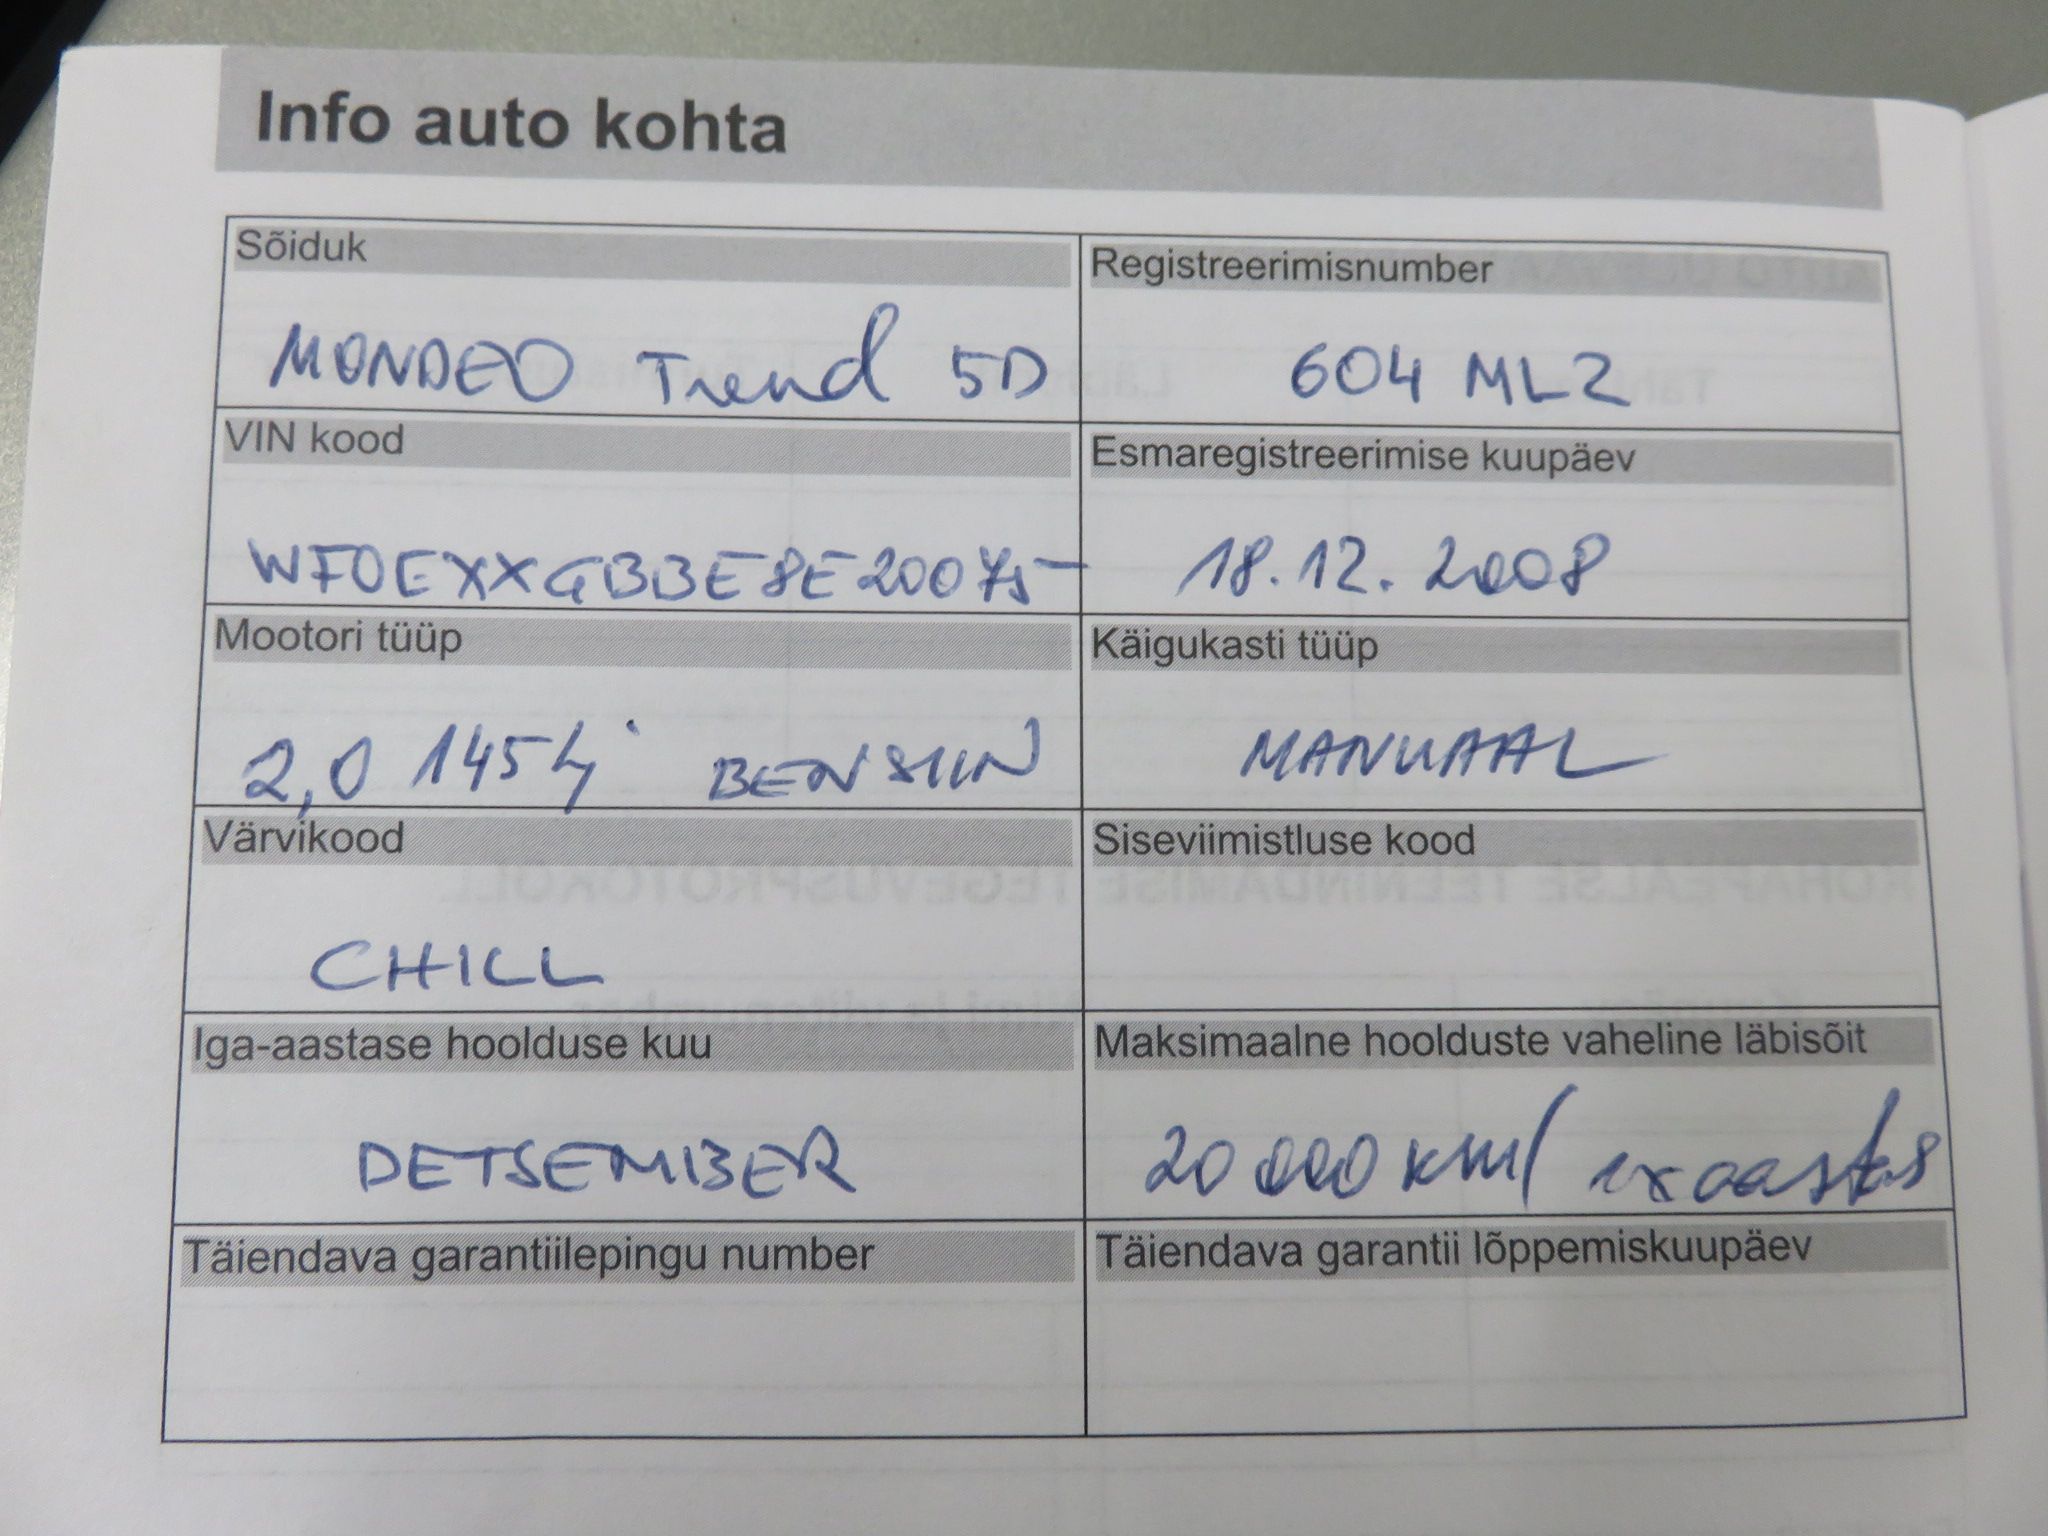 Info auto kohta
Sõiduk
MONDEO Trend 5D
Registreerimisnumber
604 MLZ
VIN kood
WF0EXXGBBE8E20075
Esmaregistreerimise kuupäev
18.12.2008
Mootori tüüp
2,0 145hj BENSIIN
Käigukasti tüüp
MANUAAL
Värvikood
CHILL
Siseviimistluse kood
Iga-aastase hoolduse kuu
DETSEMBER
Maksimaalne hoolduste vaheline läbisõit
20 000 km/ 1x aastas
Täiendava garantiilepingu number
Täiendava garantii lõppemiskuupäev